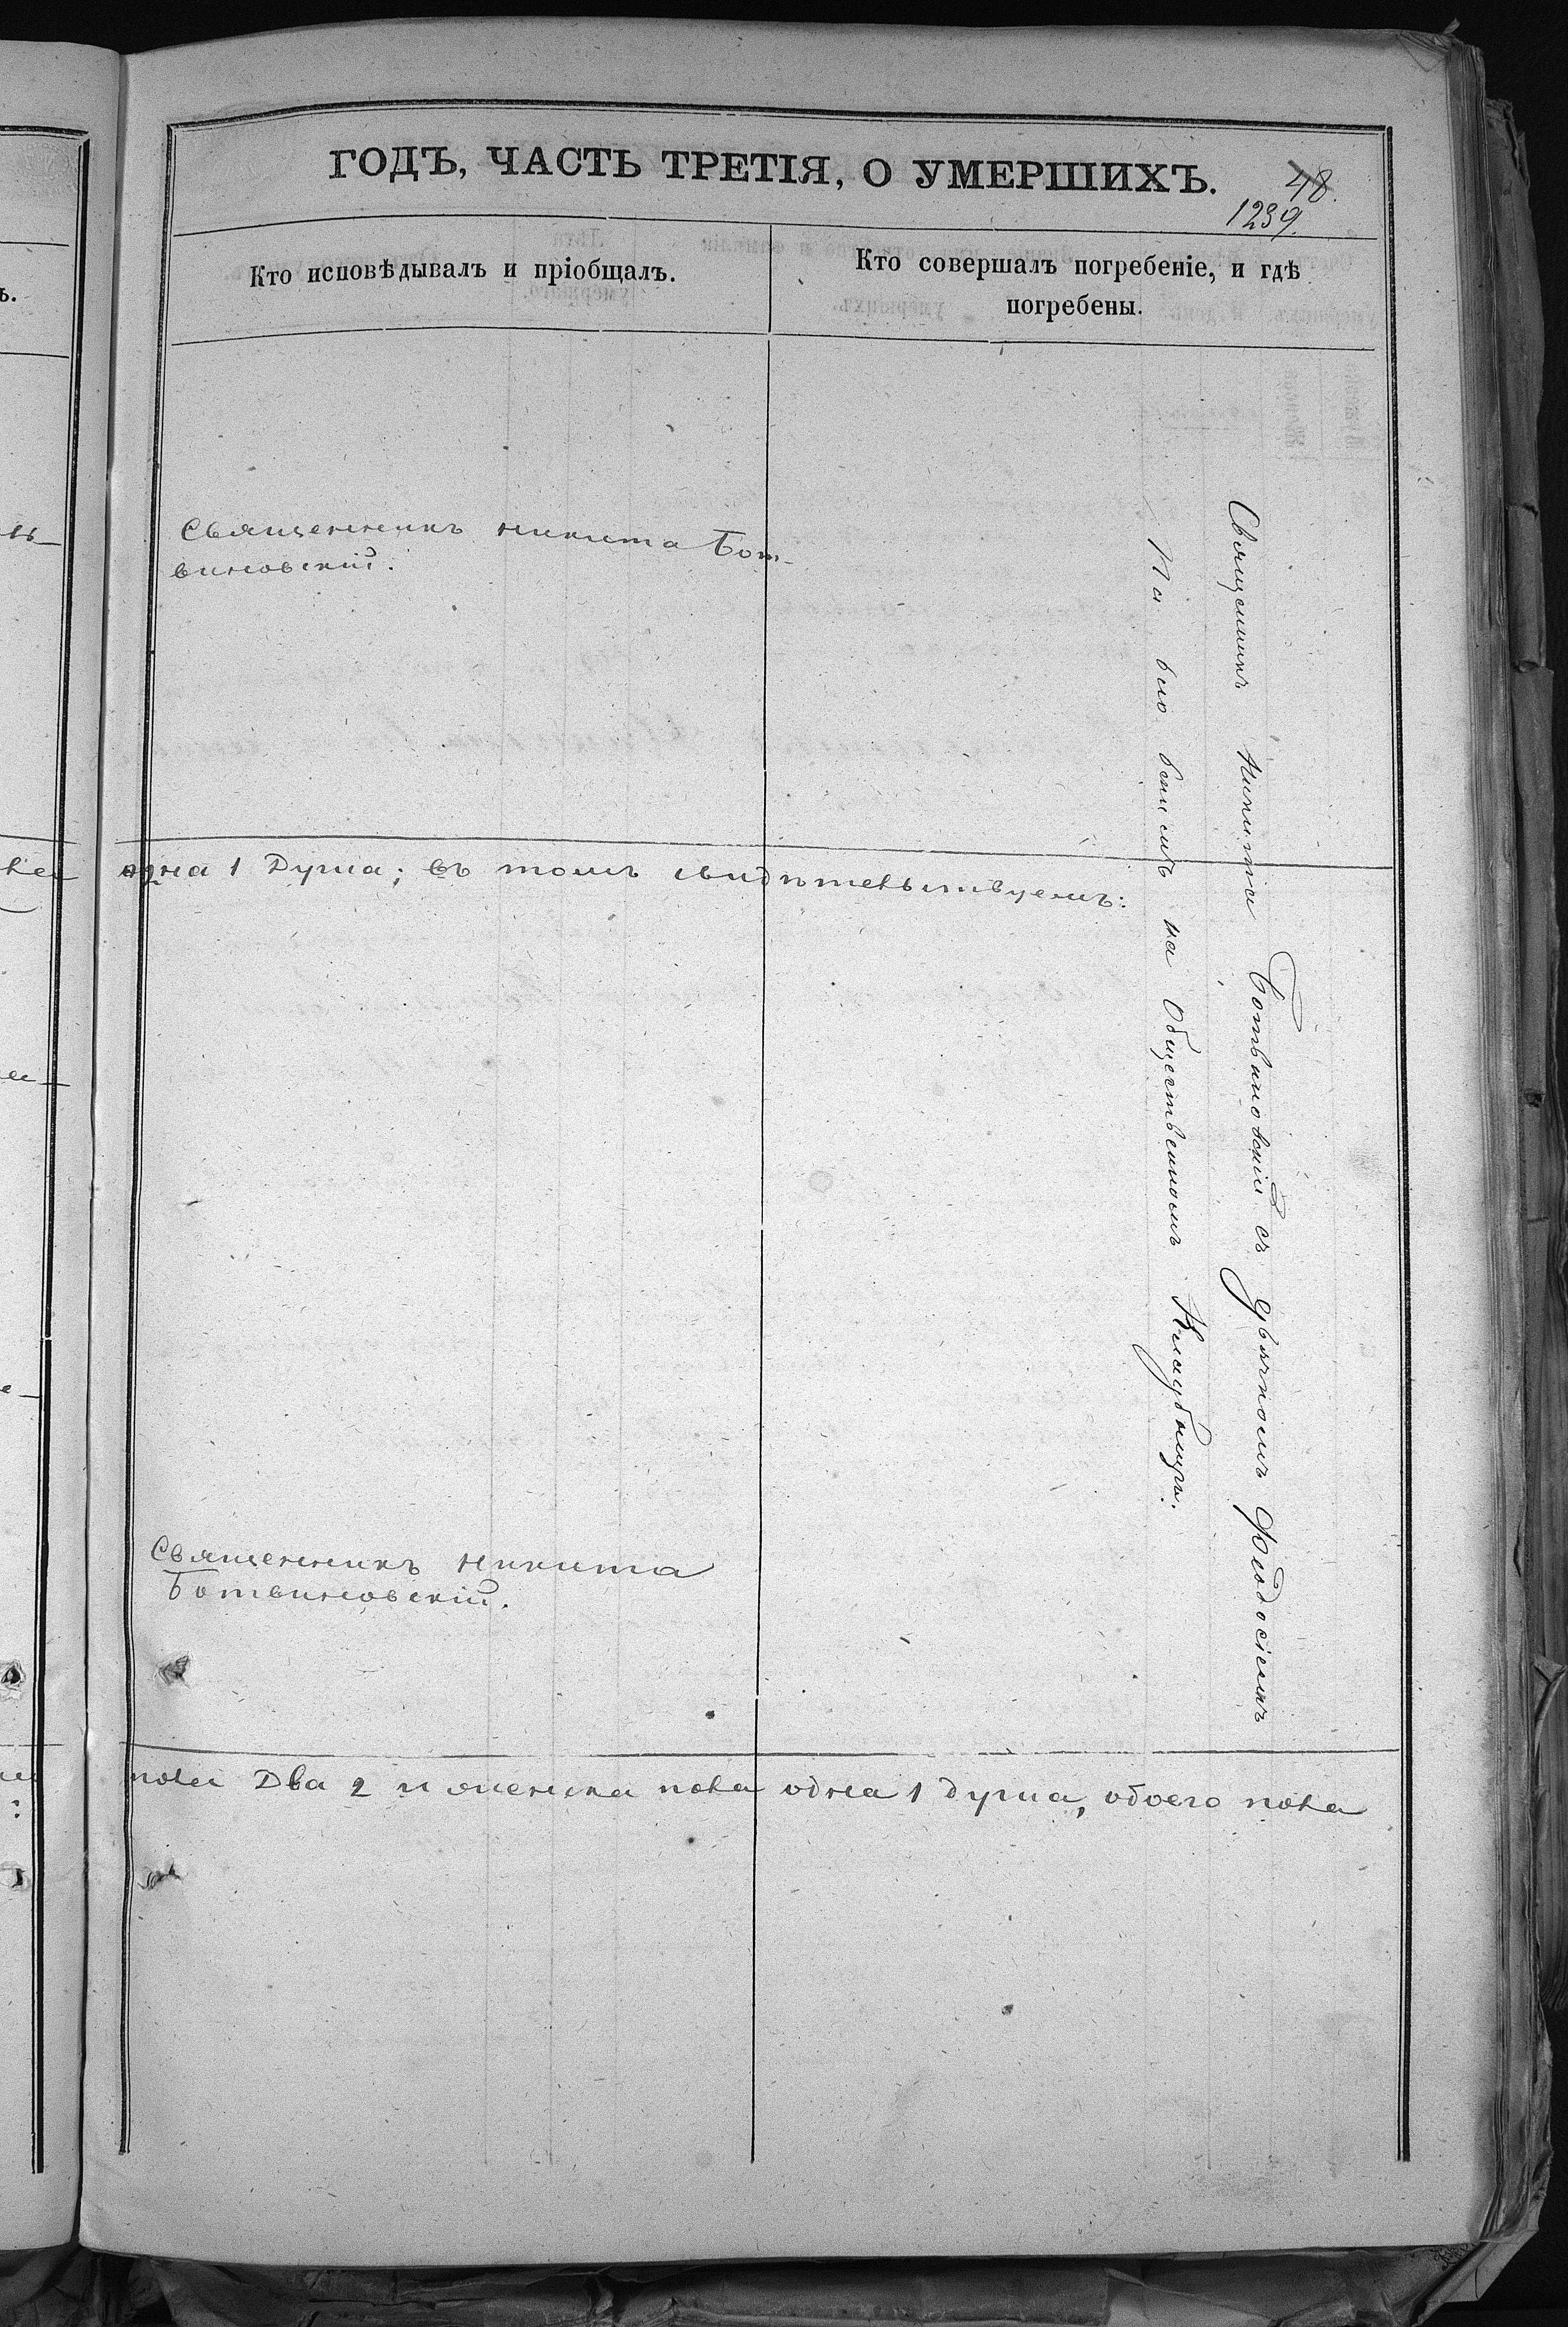 ГОДЪ, ЧАСТЬ ТРЕТІЯ, О УМЕРШИХЪ.
48.
1239.
Кто исповѣдывалъ и пріобщалъ.
Кто совершалъ погребеніе, и гдѣ
погребены.
Священникъ Никита Бот-
виновскій.
Священникъ Никита Ботвиновскій съ дьячкомъ Фиодосіемъ
на Общественномъ Кладбищѣ.
одна 1 Душа; въ томъ свидѣтельствуемъ:
Священникъ Никита
Ботвиновскій.
пола Два 2 и женска пола одна 1 душа, обоего пола